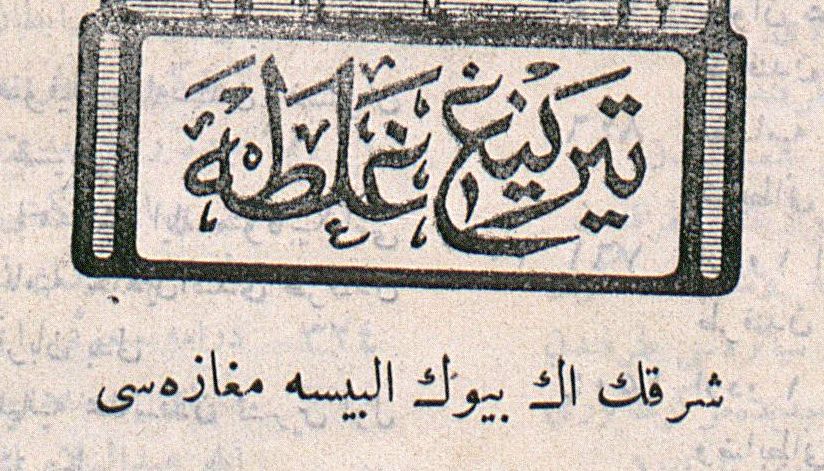 تيرينغ غلطه
شرقك اك بيوك البيسه مغازه‌سى